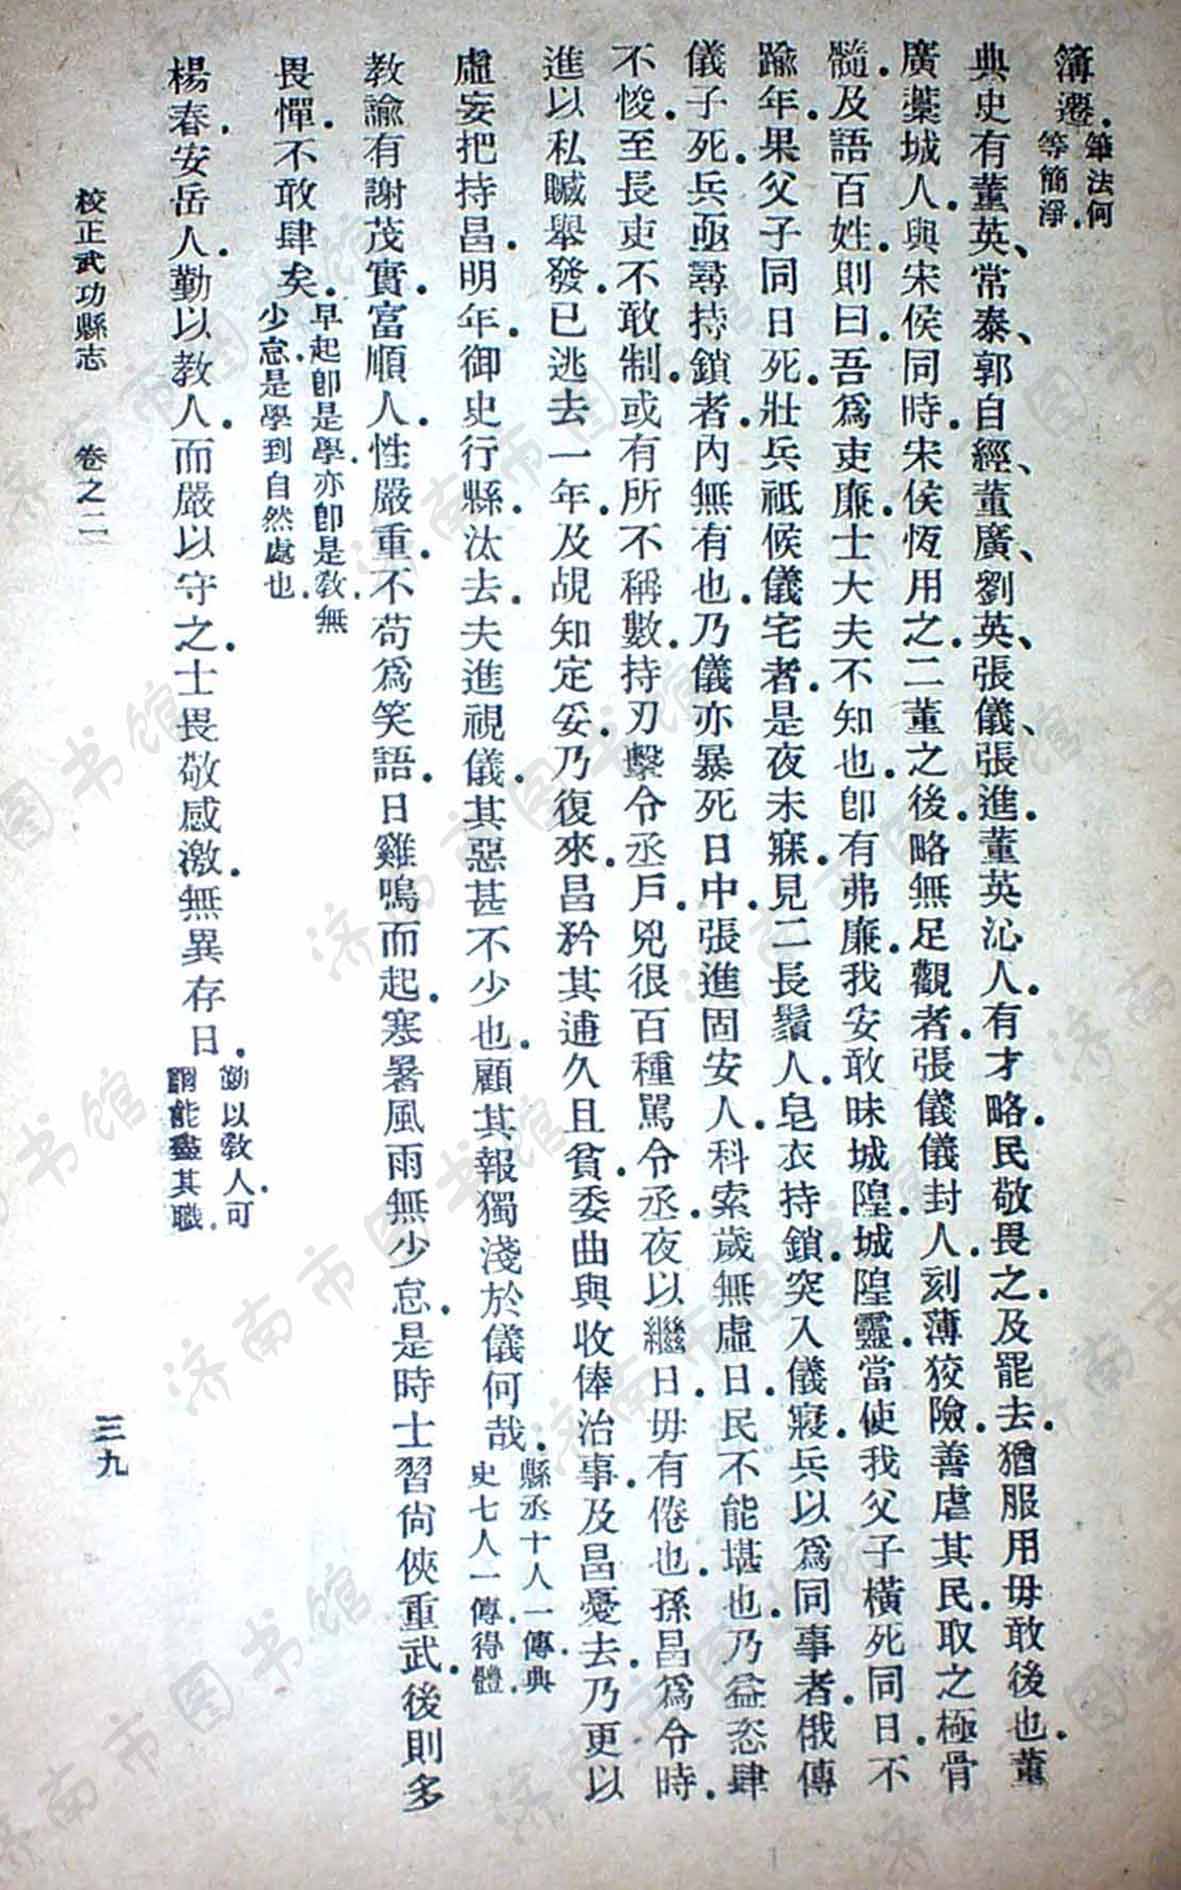 簿遷.筆法何等簡淨.
典史有董英、常泰、郭自經、董廣、劉英、張儀、張進.董英沁人.有才略.民敬畏之.及罷去.猶服用毋敢後也.董
廣藁城人.與宋侯同時.宋侯恆用之.二董之後.略無足觀者.張儀儀封人.刻薄狡險.善虐其民.取之極骨
髓.及語百姓.則曰.吾爲吏廉.士大夫不知也.卽有弗廉.我安敢昧城隍.城隍靈.當使我父子橫死同日.不
踰年.果父子同日死.壯兵祗候儀宅者.是夜未寐.見二長鬚人.皂衣持鎖.突入儀寢.兵以爲同事者.俄傳
儀子死.兵亟尋持鎖者.內無有也.乃儀亦暴死日中.張進固安人.科索歲無虛日.民不能堪也.乃益恣肆
不悛.至長吏不敢制.或有所不稱數.持刃擊令丞戶.兇很百種.駡令丞.夜以繼日.毋有倦也.孫昌爲令時.
進以私贓舉發.已逃去一年.及覘知定妥.乃復來.昌矜其逋久且貧.委曲與收俸治事.及昌憂去.乃更以
虛妄把持昌.明年.御史行縣.汰去.夫進視儀.其惡甚不少也.顧其報獨淺於儀何哉.縣丞十人一傳.典史七人一傳.得體.
教諭有謝茂實.富順人.性嚴重.不苟爲笑語.日雞鳴而起.寒暑風雨無少怠.是時士習尙俠重武.後則多
畏憚.不敢肆矣.早起卽是學.亦卽是敎.無少怠.是學到自然處也.
楊春.安岳人.勤以教人.而嚴以守之.士畏敬感激.無異存日.勤以敎人.可謂能盡其職.
校正武功縣志 卷之二
三九